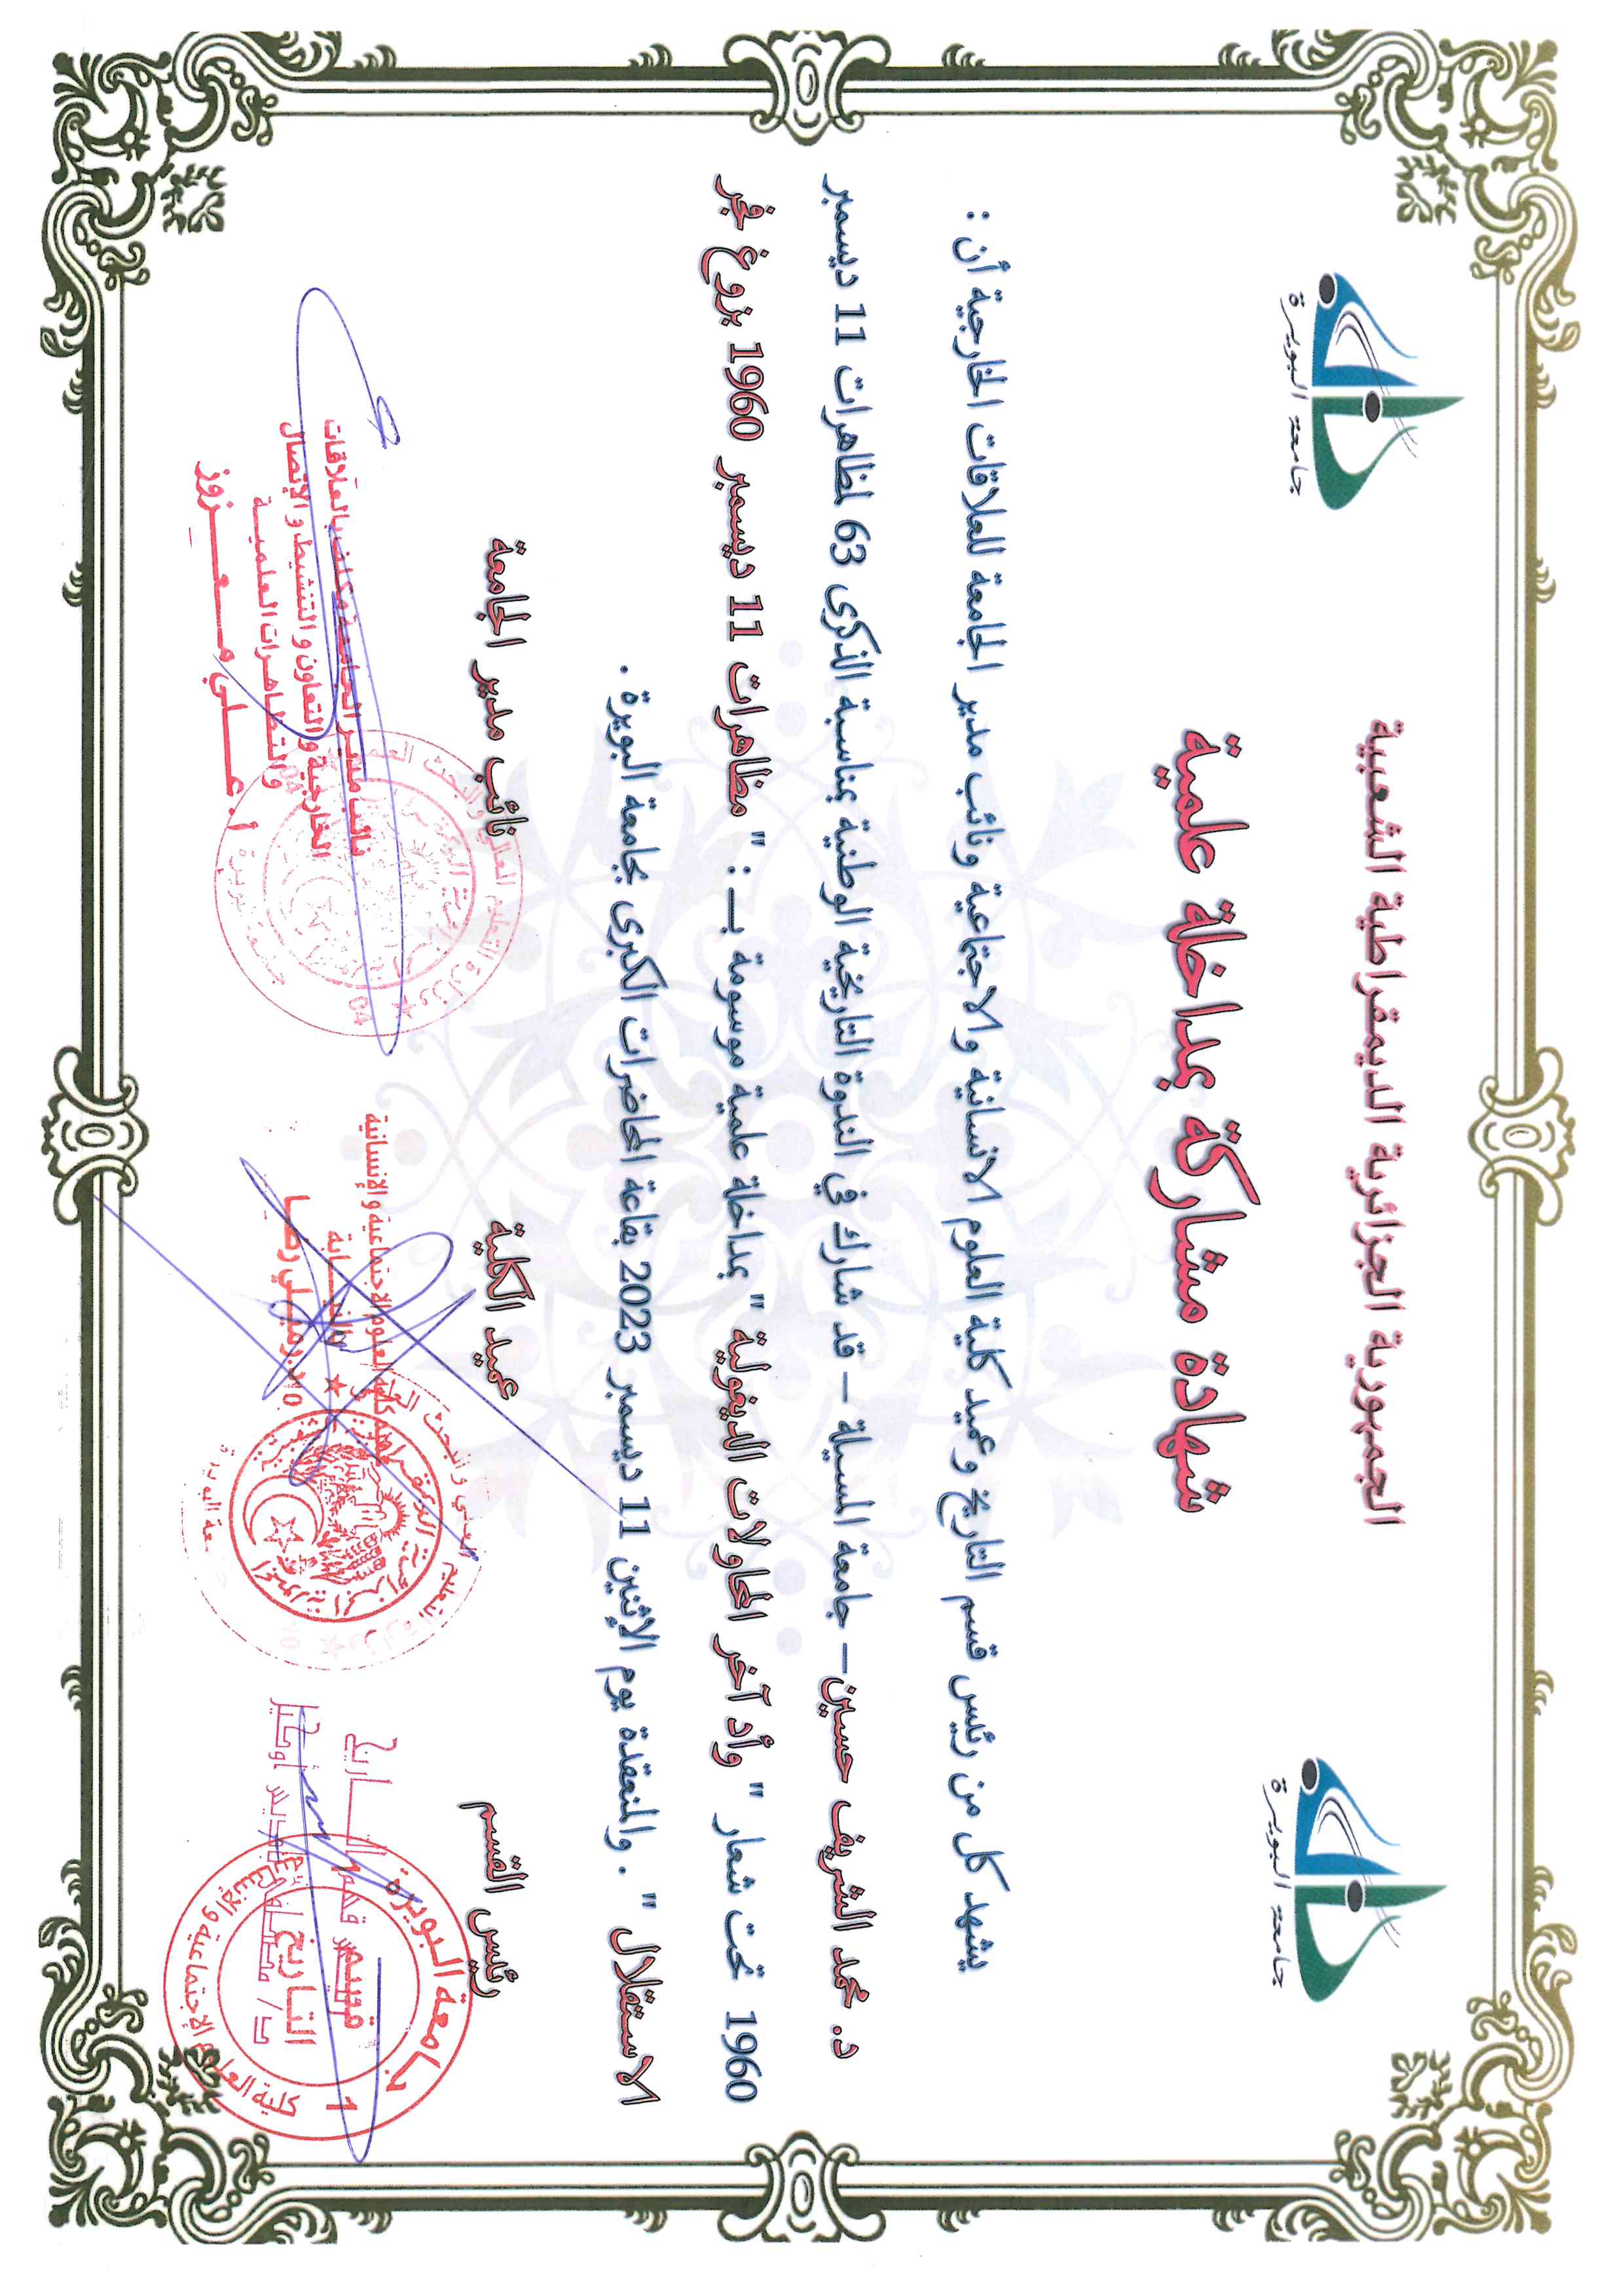 الجمهورية الجزائرية الديمقراطية الشعبية
جامعة البويرة
جامعة البويرة
شهادة مشاركة بمداخلة علمية
يشهد كل من رئيس قسم التاريخ وعميد كلية العلوم الانسانية والاجتماعية ونائب مدير الجامعة للعلاقات الخارجية أن :
د. محمد الشريف حسين – جامعة المسيلة – قد شارك في الندوة التاريخية الوطنية بمناسبة الذكرى 63 لمظاهرات 11 ديسمبر
1960 تحت شعار " وأد آخر المحاولات الديغولية " بمداخلة علمية موسومة بـــ : " مظاهرات 11 ديسمبر 1960 بزوغ فجر
الاستقلال " . والمنعقدة يوم الإثنين 11 ديسمبر 2023 بقاعة المحاضرات الكبرى بجامعة البويرة .
رئيس القسم
عميد الكلية
نائب مدير الجامعة
جامعة البويرة
قسم
التاريخ
كلية العلوم الإجتماعية و الإنسانية
1
كلية العلوم الاجتماعية والإنسانية
بالنيابة
نائب مدير الجامعة مكلف بالعلاقات
الخارجية و التعاون و التنشيط و الإتصال
والتظاهرات العلمية
أ. عـلـي مـعـزوز
04